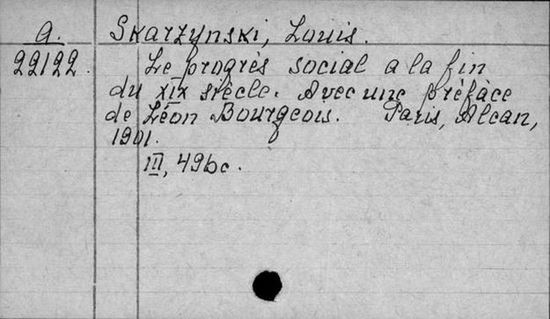 a. Skarzynski, Louis.
22122. Le progrès social a la fin
du XIX siècle. Avec une préface
de Léon Bourgeois. Paris, Alcan,
1901.
III, 496 c.